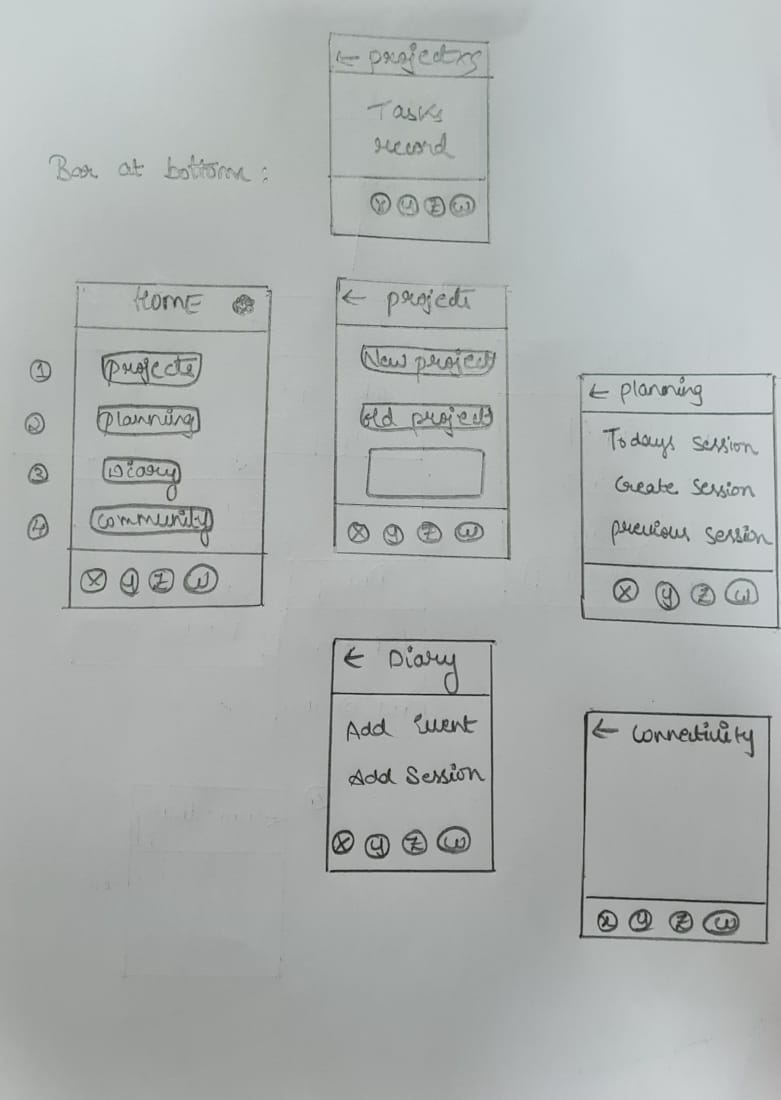 ← projectxs
Tasks
record
X Y Z W
Bar at bottom :
HOME
① Projects
② Planning
③ Diary
④ Community
X Y Z W
← projects
New project
Old project
X Y Z W
← planning
Todays session
Create session
previous session
X Y Z W
← Diary
Add Event
Add Session
X Y Z W
← Connectivity
X Y Z W